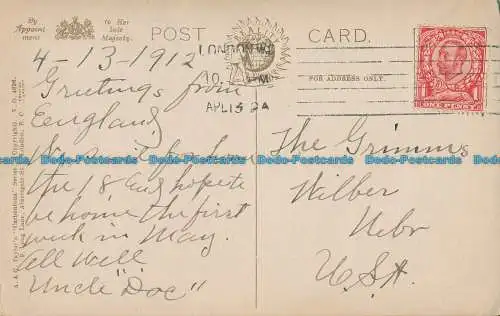 By
Appoint
ment
to Her
late
Majesty.
POST
CARD.
LONDON
10.
APL 15
FOR ADDRESS ONLY.
ONE PENNY
4-13-1912
Greetings from
England
We sail for home
the 18 and hope to
be home the first
week in May.
All Well
Uncle "Doc"
The Grimms
Wilber
Nebr
USA
Dodo-Postcards